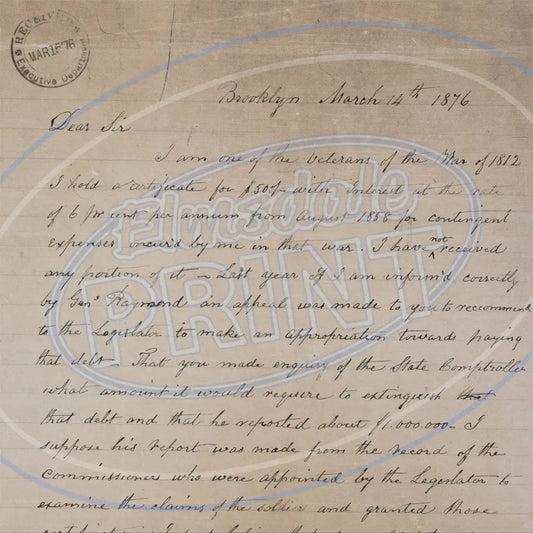 RECEIVED
MAR 15 76
Executive Depart
Brooklyn March 14th 1876
Dear Sir
I am one of the Veterans of the War of 1812
I hold a certificate for $50.%- with Interest at the rate
of 6 pr cent per annum from August 1858 for contingent
Expenses incur'd by me in that war. I have not received
any portion of it – Last year if I am inform'd correctly
by Genl Raymond an appeal was made to you to reccommend
to the Legeslator to make an appropriation towards paying
that debt – That you made enquiry of the State Comptroller
what amount it would require to extinguish that
that debt and that he reported about $1.000.000 – I
suppose his report was made from the record of the
Commissioners who were appointed by the Legeslator to
examine the claims of the soldier and granted those
Elmsdale
PRINT